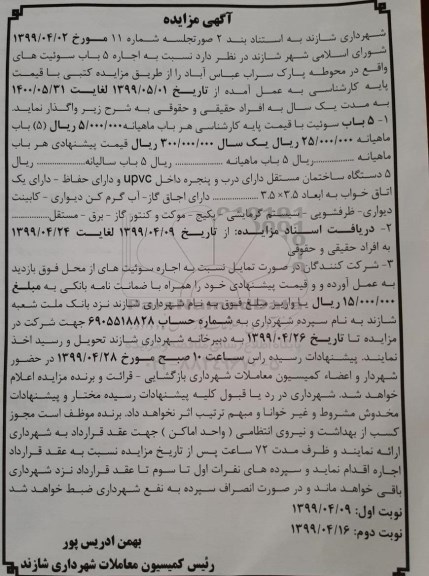 آگهی مزایده
شهرداری شازند به استناد بند ۲ صورتجلسه شماره ۱۱ مورخ ۱۳۹۹/۰۴/۰۲
شورای اسلامی شهر شازند در نظر دارد نسبت به اجاره ۵ باب سوئیت های
واقع در محوطه پارک سراب عباس آباد را از طریق مزایده کتبی با قیمت
پایه کارشناسی به عمل آمده از تاریخ ۱۳۹۹/۰۵/۰۱ لغایت ۱۴۰۰/۰۵/۳۱
به مدت یک سال به افراد حقیقی و حقوقی به شرح زیر واگذار نماید.
۱- ۵ باب سوئیت با قیمت پایه کارشناسی هر باب ماهیانه ۵/۰۰۰/۰۰۰ ریال (۵) باب
ماهیانه ۲۵/۰۰۰/۰۰۰ ریال یک سال ۳۰۰/۰۰۰/۰۰۰ ریال قیمت پیشنهادی هر باب
ماهیانه ................ ریال ۵ باب ماهیانه ................ ریال ۵ باب سالیانه ................ ریال
۵ دستگاه ساختمان مستقل دارای درب و پنجره داخل upvc و دارای حفاظ - دارای یک
اتاق خواب به ابعاد ۳.۵×۳.۵ ................ دارای اجاق گاز- آب گرم کن دیواری - کابینت
دیواری- ظرفشویی - سیستم گرمایشی - پکیج - موکت و کنتور گاز - برق - مستقل................
۲- دریافت اسناد مزایده: از تاریخ ۱۳۹۹/۰۴/۰۹ لغایت ۱۳۹۹/۰۴/۲۴
به افراد حقیقی و حقوقی
۳- شرکت کنندگان در صورت تمایل نسبت به اجاره سوئیت های از محل فوق بازدید
به عمل آورده و و قیمت پیشنهادی خود را همراه با ضمانت نامه بانکی به مبلغ
۱۵/۰۰۰/۰۰۰ ریال یا واریز مبلغ فوق به نام شهرداری شازند نزد بانک ملت شعبه
شازند به نام سپرده شهرداری به شماره حساب ۶۹۰۵۵۱۸۸۲۸ جهت شرکت در
مزایده تا تاریخ ۱۳۹۹/۰۴/۲۶ به دبیرخانه شهرداری شازند تحویل و رسید اخذ
نمایند. پیشنهادات رسیده راس ساعت ۱۰ صبح مورخ ۱۳۹۹/۰۴/۲۸ در حضور
شهردار و اعضاء کمیسیون معاملات شهرداری بازگشایی - قرائت و برنده مزایده اعلام
خواهد شد. شهرداری در رد یا قبول کلیه پیشنهادات رسیده مختار و پیشنهادات
مخدوش مشروط و غیر خوانا و مبهم ترتیب اثر نخواهد داد. برنده موظف است مجوز
کسب از بهداشت و نیروی انتظامی ( واحد اماکن ) جهت عقد قرارداد به شهرداری
ارائه نمایند و ظرف مدت ۷۲ ساعت پس از تاریخ مزایده نسبت به عقد قرارداد
اجاره اقدام نماید و سپرده های نفرات اول تا سوم تا عقد قرارداد نزد شهرداری
باقی خواهد ماند و در صورت انصراف سپرده به نفع شهرداری ضبط خواهد شد
نوبت اول: ۱۳۹۹/۰۴/۰۹
نوبت دوم: ۱۳۹۹/۰۴/۱۶
بهمن ادریس پور
رئیس کمیسیون معاملات شهرداری شازند